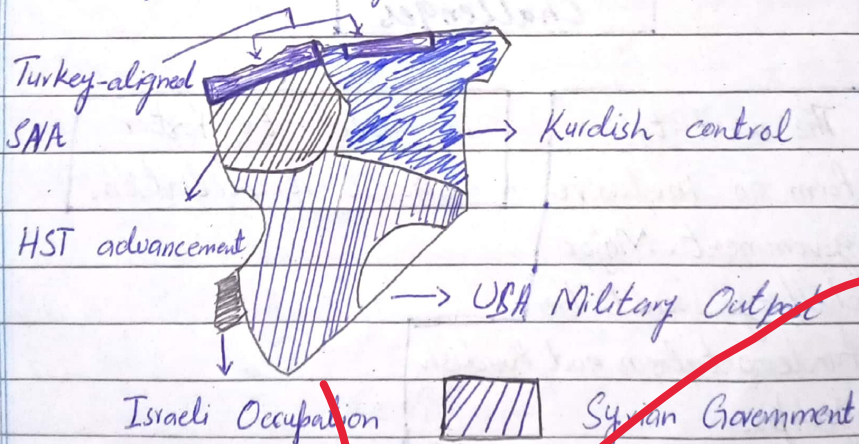 Challenges
Turkey-aligned
SNA
Kurdish control
HST advancement
USA Military Outpost
Israeli Occupation
Syrian Government